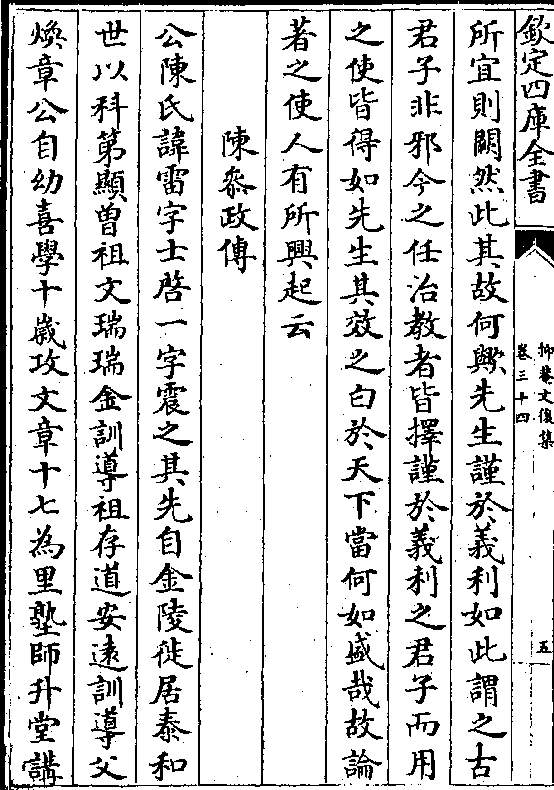 欽定四庫全書
抑菴文後集
卷三十四
五
所宜則闕然此其故何歟先生謹於義利如此謂之古
君子非邪今之任治教者皆擇謹於義利之君子而用
之使皆得如先生其效之白於天下當何如盛哉故論
著之使人有所興起云
陳叅政傳
公陳氏諱雷字士啓一字震之其先自金陵徙居泰和
世以科第顯曾祖文瑞瑞金訓導祖存道安遠訓導父
煥章公自幼喜學十歲攻文章十七為里塾師升堂講